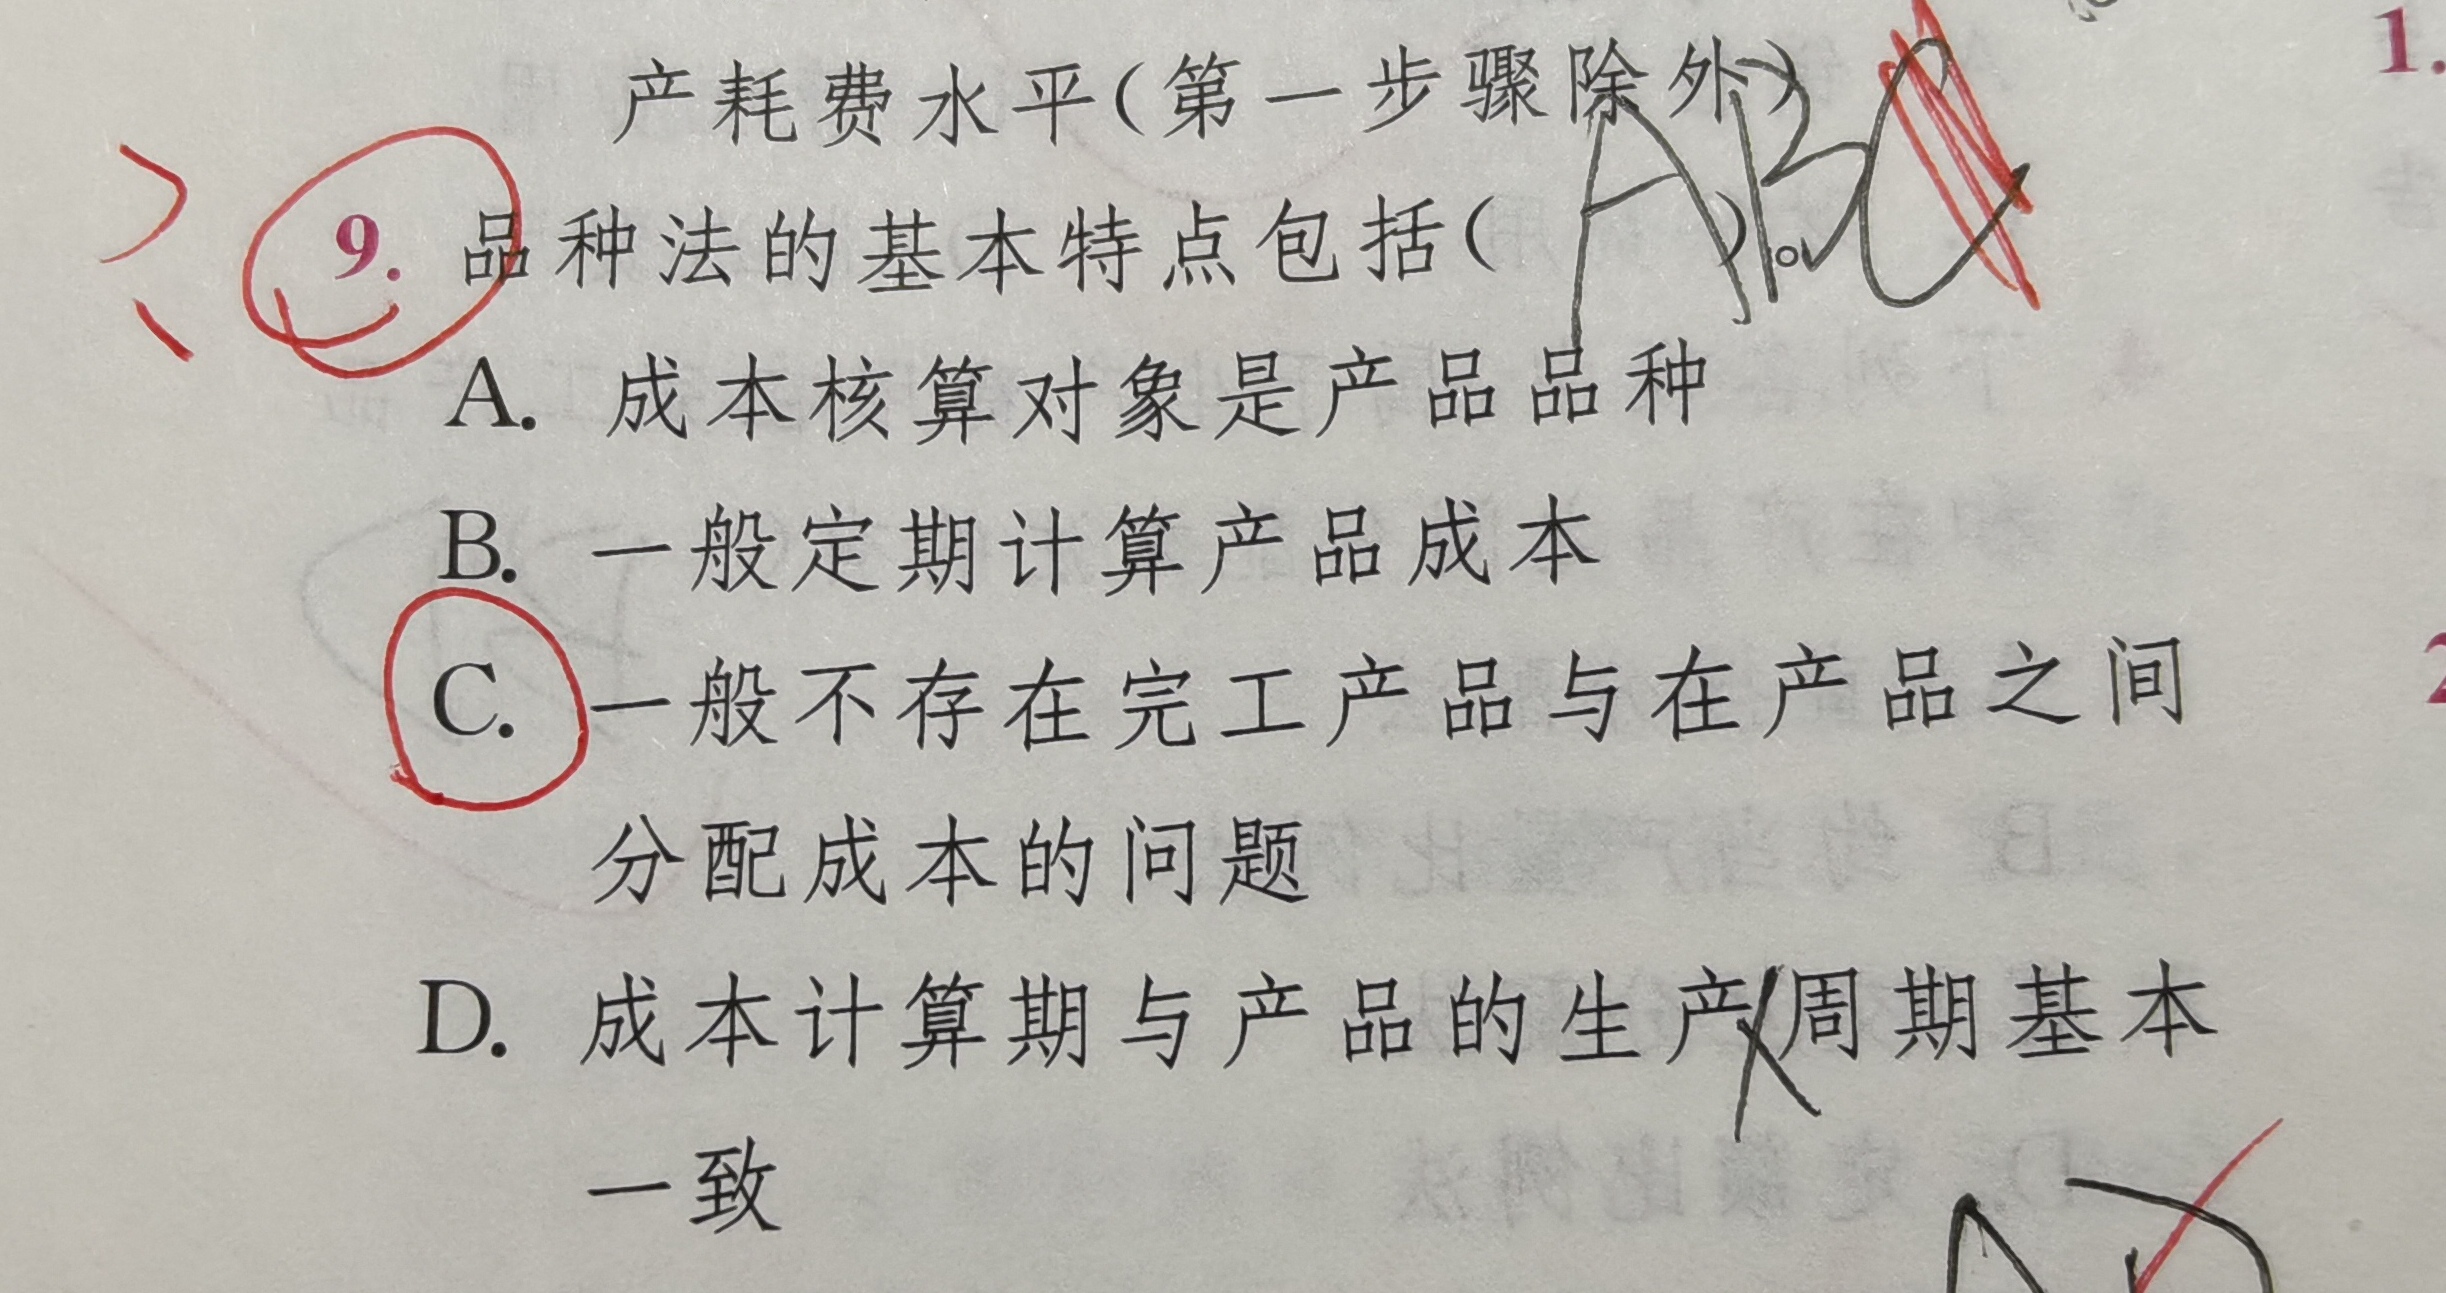 产耗费水平(第一步骤除外)
9. 品种法的基本特点包括( )。
ABC
A. 成本核算对象是产品品种
B. 一般定期计算产品成本
C. 一般不存在完工产品与在产品之间
分配成本的问题
D. 成本计算期与产品的生产周期基本
一致
1.
2